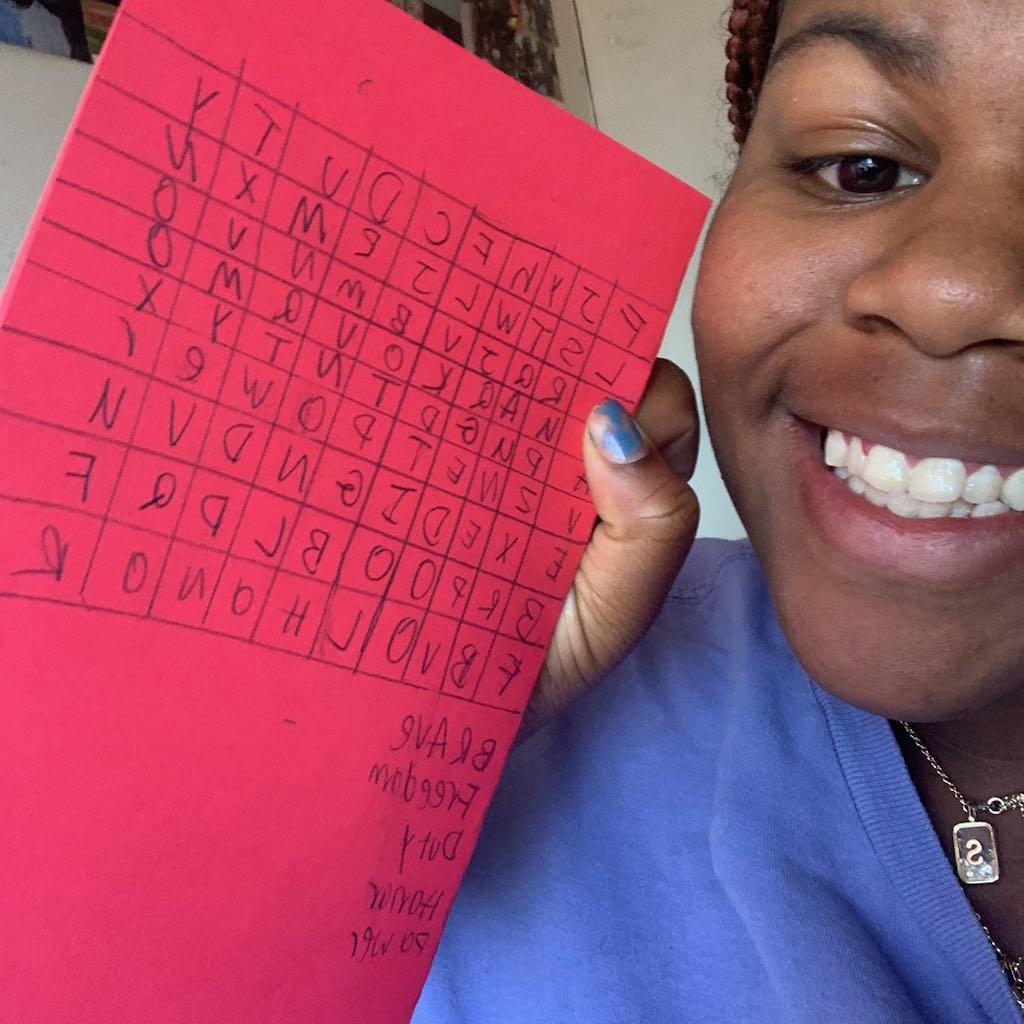 J Y N E C D U T Y
L S T W L J E W X N
R Q J V B M N V O
N A R K O V Q W O
P N G D T N T Y X
V S N E T P O W e r
E X E D I G N D V N
B R P O O B L D Q F
F B V O L H O N O R
BRAVE
Freedom
Duty
Honor
Power
S